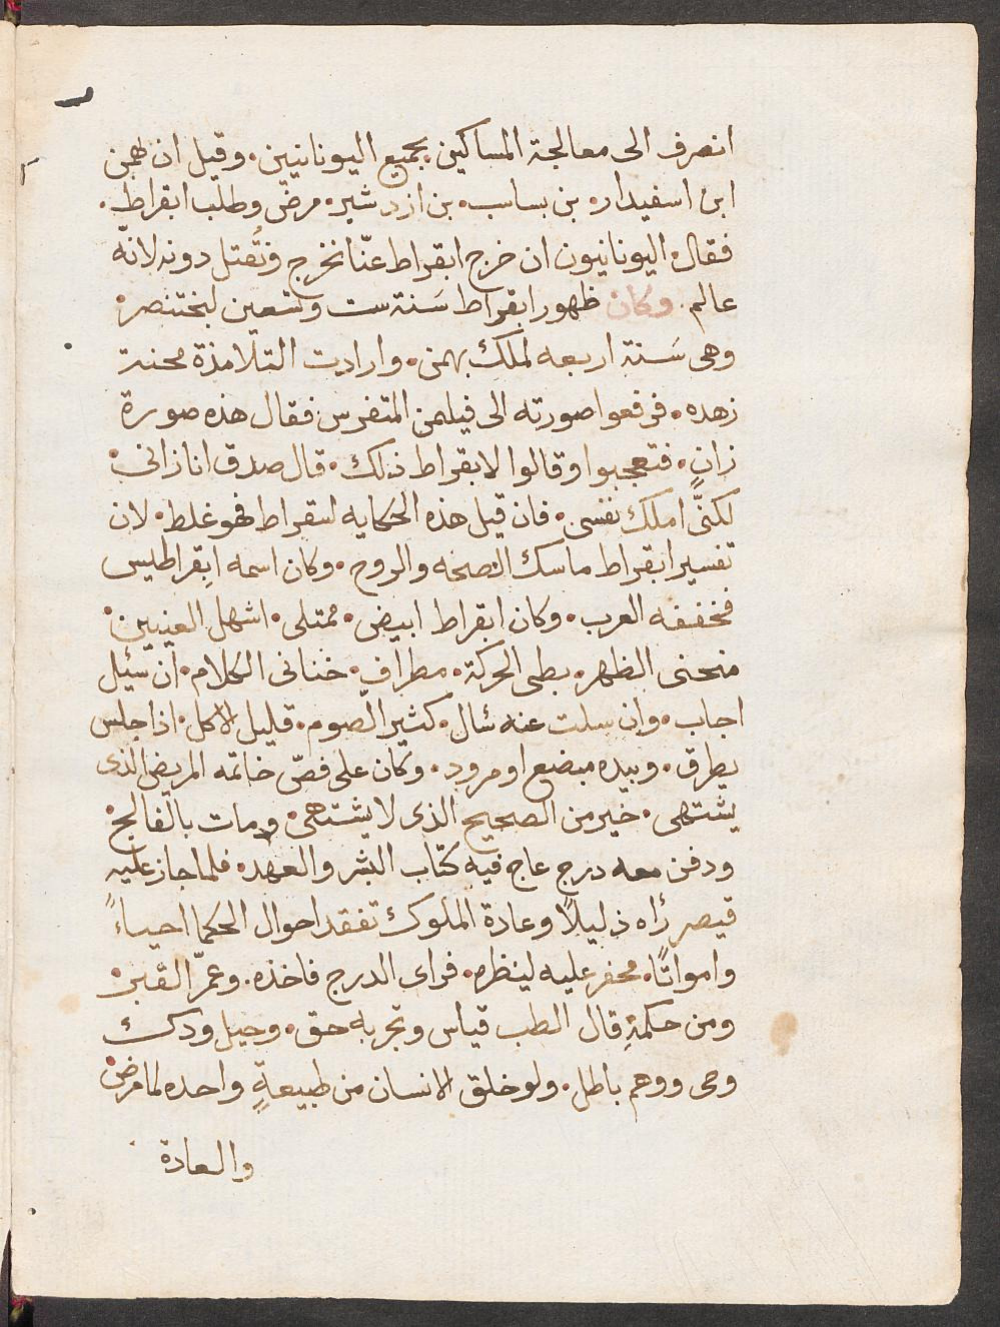 انصرف الى معالجة المساكين بجميع اليونانيين. وقيل ان بهمن
ابن اسفيدار. بن بساسب. بن ازدشير. مرض وطلب ابقراط.
فقال اليونانيون ان خرج ابقراط عنّا نخرج ونُقتل دونه لانّه
عالم. وكان ظهور ابقراط سَنة ست وتسعين لبختنصر.
وهى سَنة اربعه لملك بهمن. وارادت التلامذة محنة
زهده. فرفعوا صورته الى فيليمن المتفرس فقال هذه صورة
زانٍ. فتعجبوا وقالوا لابقراط ذلك. قال صدق انا زانى.
لكنىّ املك نفسى. فان قيل هذه الحكايه لسقراط فهو غلط. لان
تفسير ابقراط ماسك الصحه والروح. وكان اسمه ابِقراطيس
فخففه العرب. وكان ابقراط ابيض. ممتلى. اشهل العينين.
منحنى الظهر. بطى الحركة. مطراف. الكلام. ان سئيل
اجاب. وان سلت عنه سَال. كثير الصوم. قليل الاكل. اذا جلس
يطرق. وبيده مبضع او مرود. وكان على فصّ خاتمه المريض الذى
يشتهى. خير من الصحيح الذى لا يشتهى. ومات بالفالج.
ودفن معه درج عاج فيه كتاب البثر والعهد. فلما جاز عليه
قيصر رٔاه ذليلًا وعادة الملوك تفقد احوال الحكما احياءً
وامواتًا. فحفر عليه لينظره. فراى الدرج فاخذه. وعمّر القبر.
ومن حكمةِ قال الطب قياس وتجربه حق. وحيل ودكك
وحى ووهم باطل. ولو خلق الانسان من طبيعةٍ واحده لما مرض.
والعادة